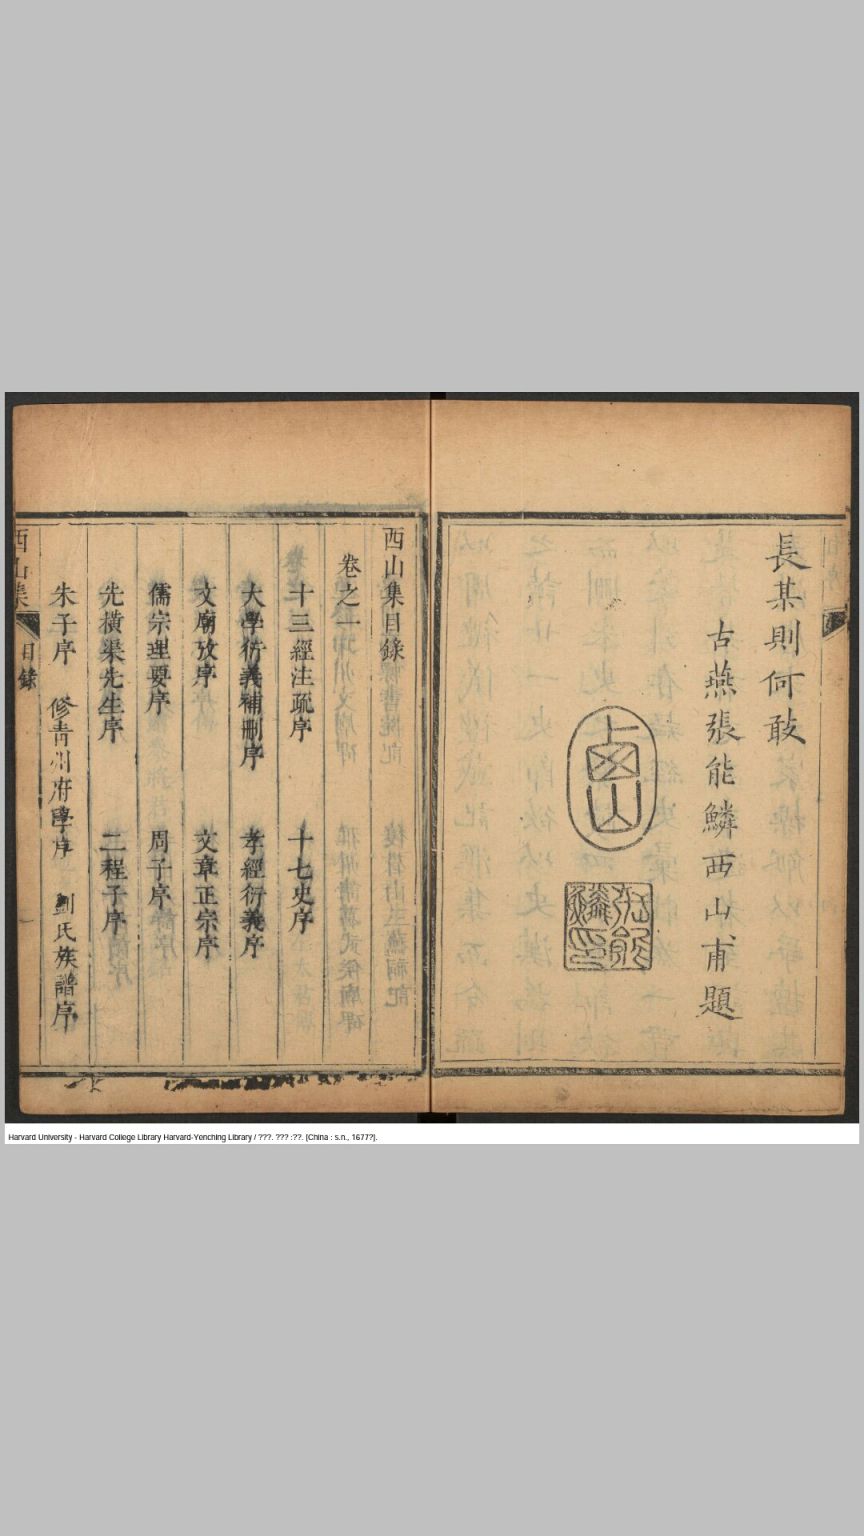 長某則何敢
古燕張能鱗西山甫題
西山
張能鱗印
西山集目錄
卷之一
十三經注疏序 十七史序
大學衍義補刪序 孝經衍義序
文廟攷序 文章正宗序
儒宗理要序 周子序
先橫渠先生序 二程子序
朱子序 修青州府學序 劉氏族譜序
西山集 目錄
Harvard University - Harvard College Library Harvard-Yenching Library / ???. ??? :??. [China : s.n., 1677?].